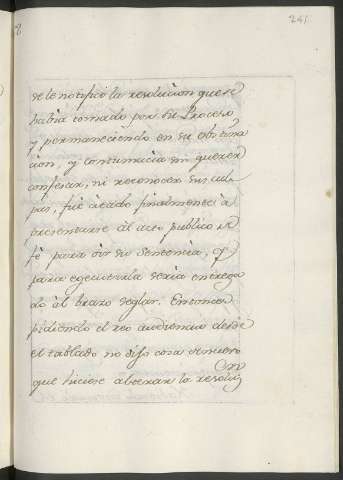 241
se le notificó la resolucion que se
habia tomado por su Proceso
y permaneciendo en su obstina
cion, y contumacia sin querer
confesar, ni reconocer sus cul
pas, fué citado finalmente à
presentarse al auto publico de
fè para oir su Sentencia, q.
para egecutarla seria entrega
do àl brazo seglar. Entonces
pidiendo el reo audiencia desde
el tablado no dijo cosa de nuevo
que hiciese alterar la resolu